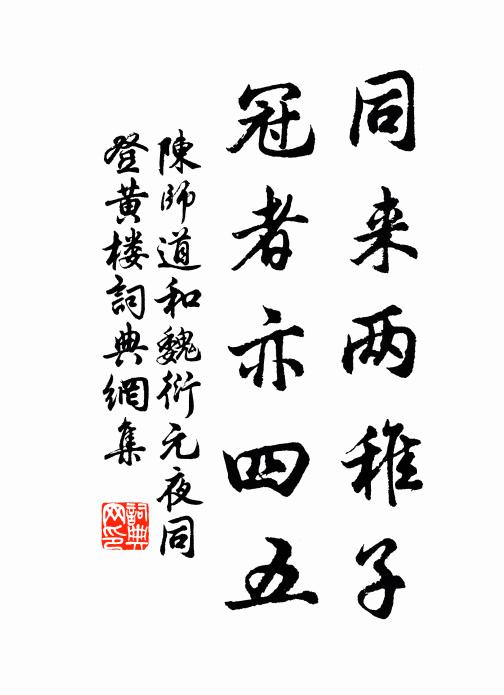 同来两稚子
冠者亦四五
陳師道和魏衍元夜同
登黄楼詞典網集
詞典
网印